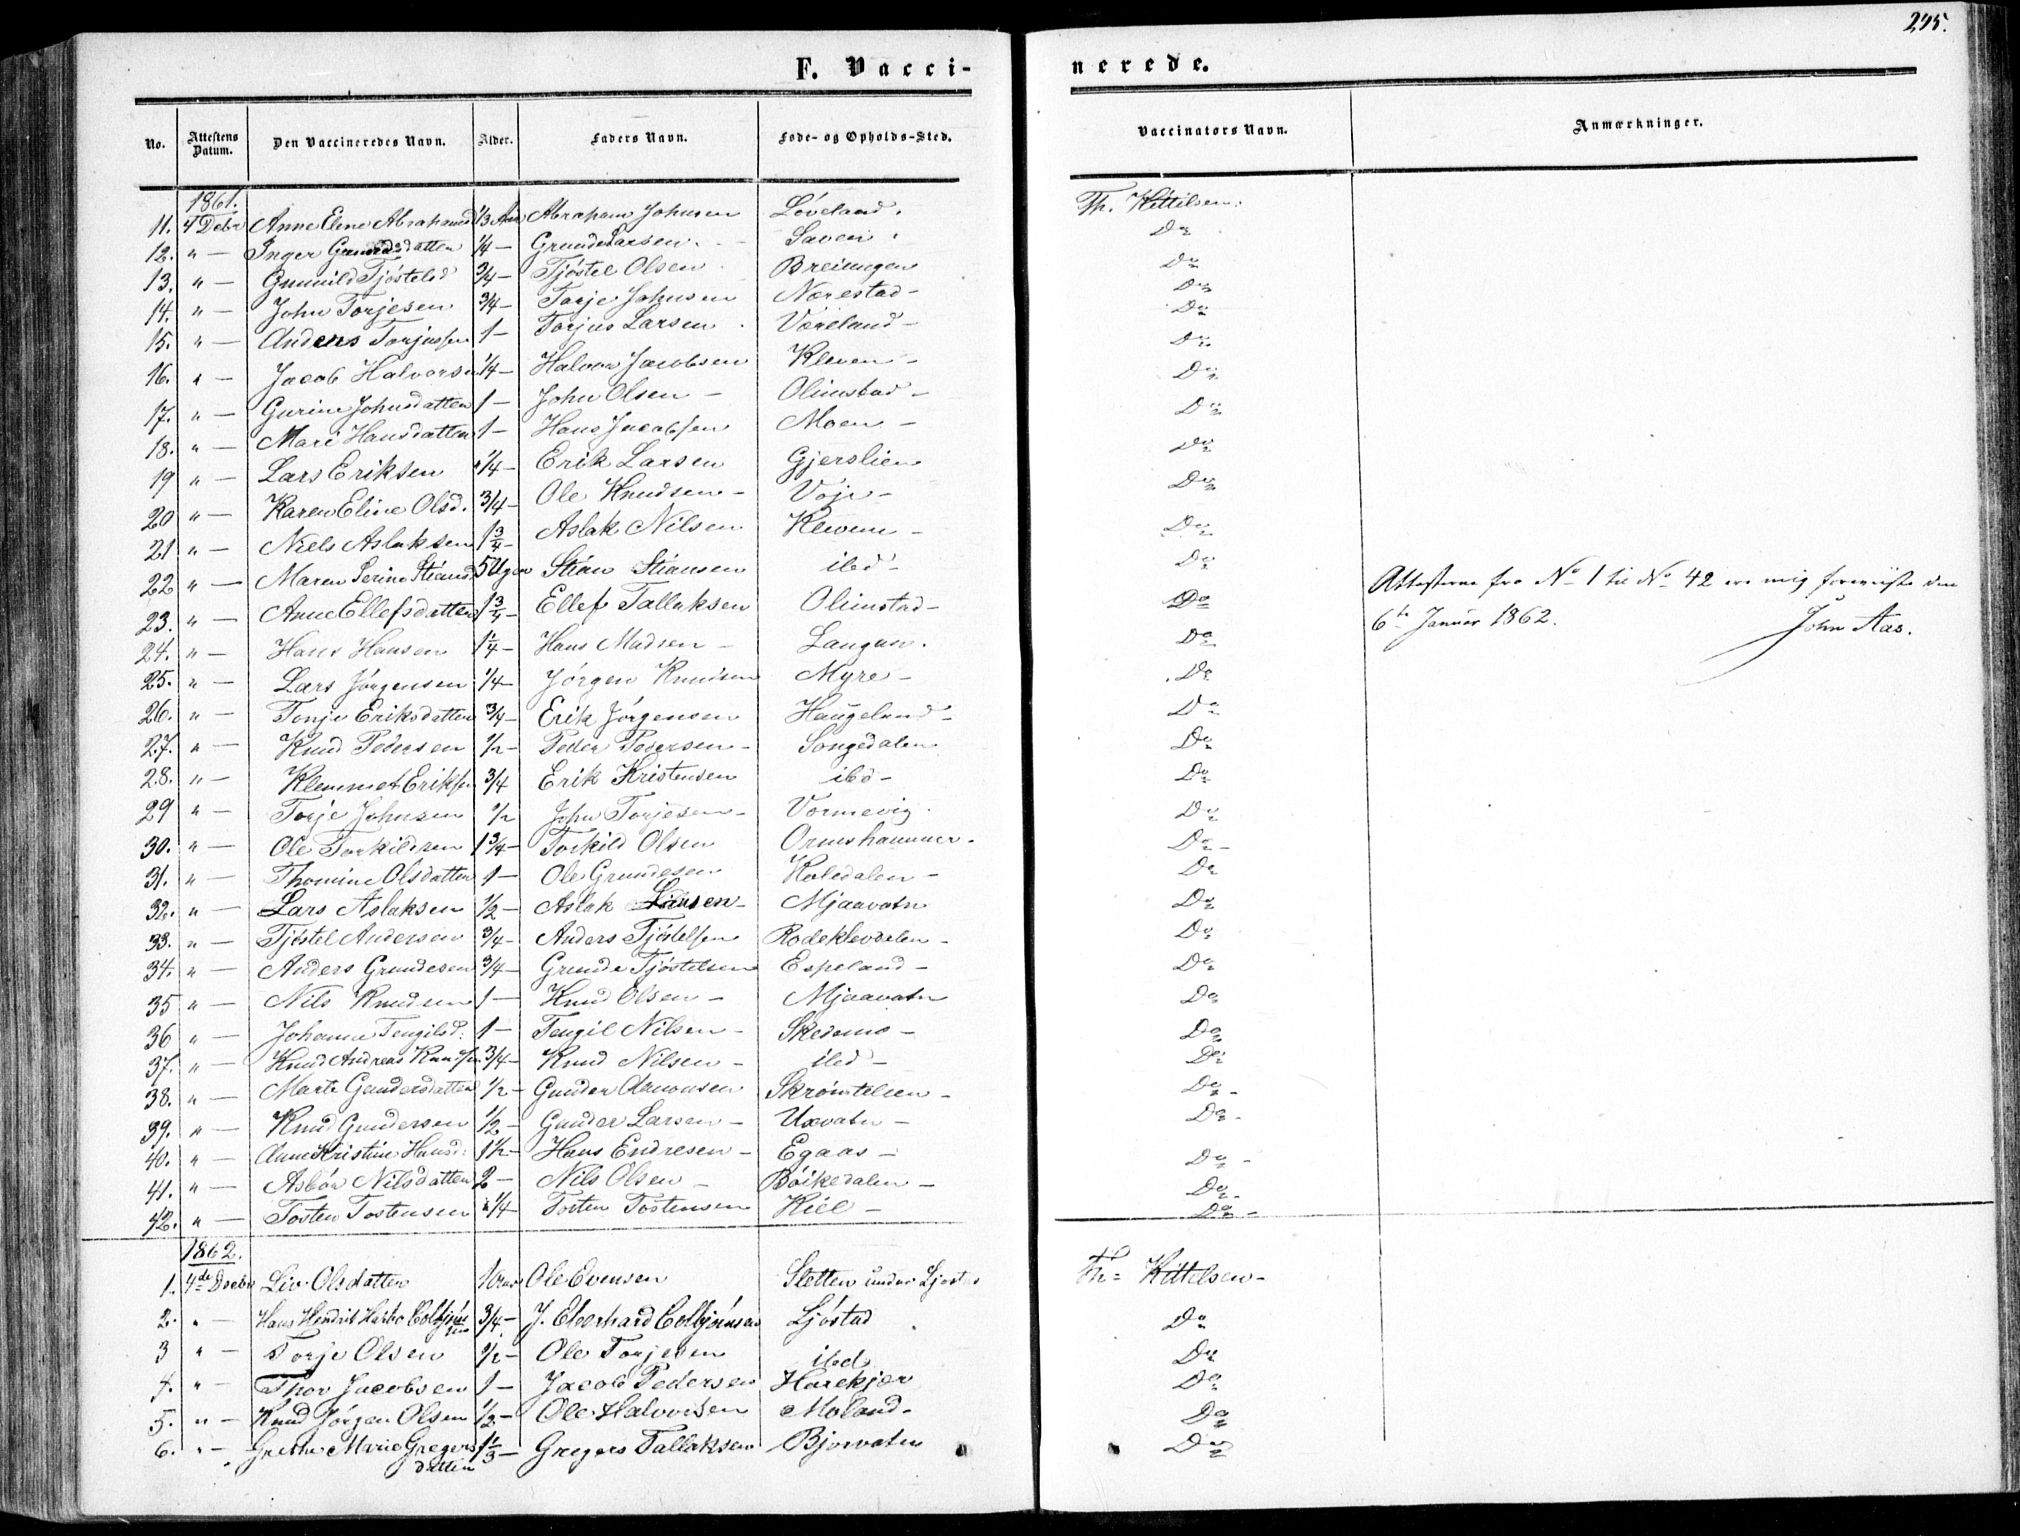 275.
F. Vacci- nerede.
No. Attestens Datum. Den Vaccineredes Navn. Alder. Faders Navn. Føde- og Opholds-Sted. Vaccinators Navn. Anmærkninger.
1861.
11. 4 Debr Anne Elene Abrahamsd 1/3 Aar Abraham Johnsen Løveland. Th. Kittilsen.
12. " — Inger Grundesdatten 1/4 — Grunde Larsen. Saven. Do
13. " — Gunnild Tjøstelsd 3/4 — Tjøstel Olsen Breiungen Do
14. " — John Torjesen 3/4 — Torje Johnsen Nærestad — Do
15. " — Anders Torjussen 1 — Torjus Larsen Væreland — Do
16. " — Jacob Halvorsen 1/4 — Halvor Jacobsen Kleven — Do
17. " — Gurine Johnsdatten 1 — John Olsen — Olimstad — Do
18. " — Mari Hansdatten 1 — Hans Jacobsen Moen — Do
19 " — Lars Eriksen 1/4 — Erik Larsen Gjerslien Do
20 " — Karen Eline Olsd. 3/4 — Ole Knudsen — Voje — Do
21 " — Niels Aslaksen 1 3/4 — Aslak Nilsen Klevene — Do
22 " — Maren Serine Stiansd 5 Uger Stian Stiansen ibd — Do
Attesterne fra No 1 til No 42 ere mig foreviste den
23. " — Anne Ellefsdatten 1 3/4 — Ellef Tallaksen Olimstad — Do
6te Januar 1862. John Aas.
24. " — Hans Hansen 1 1/4 — Hans Madsen — Langan. Do
25. " — Lars Jørgensen 1/4 — Jørgen Knudsen Myre — Do
26. " — Tonje Eriksdatten 3/4 — Erik Jørgensen Haugeland — Do
27. " — Knud Pedersen 1/2 — Peder Pedersen — Songedalen Do
28. " — Klemmet Eriksen 3/4 Erik Kristensen ibd — Do
29 " — Torje Johnsen 1/2 John Torjesen — Vormevig. Do
30. " — Ole Torkildsen 1 3/4 — Torkild Olsen Ormshammer. Do —
31. " — Thomine Olsdatten 1 — Ole Grundesen Holedalen — Do
32. " — Lars Aslaksen 1/2 — Aslak Larsen — Mjaavatn Do
33. " — Tjøstel Andersen 3/4 — Anders Tjøstelsen Rodeklevdalen — Do
34. " — Anders Grundesen 3/4 — Grunde Tjøstelsen Espeland — Do
35 " — Nils Knudsen 1 — Knud Olsen — Mjaavatn Do
36 " — Johanne Tengilsd. 1 — Tengil Nilsen — Skedsmo — Do
37. " — Knud Andreas Knudsen 3/4 — Knud Nilsen — ibd — Do
38. " — Marte Gundersdatten 1/2 — Gunder Amonsen Skrømtelien — Do —
39. " — Knud Gundersen 1/2 — Gunder Larsen — Uxvatn — Do —
40. " — Anne Kristine Hansd: 1 1/2 — Hans Endresen — Egaas — Do —
41. " — Asbør Nilsdatten 2 — Nils Olsen — Bøikedalen — Do —
42. " — Tosten Tostensen 1/4 Tosten Tostensen Kiel — Do —
1862.
1. 4de Decbr Liv Olsdatter 10 Ole Evensen Sletten under Ljøstad Th: Kittelsen —
2. " — Hans Hendrik Harbo Colbjørnsen 3/4 — J. Eberhard Colbjørnsen Ljøstad Do
3 " — Torje Olsen 1/2 — Ole Torjesen ibd Do
4. " — Thor Jacobsen 1 — Jacob Pedersen Harekjær Do
5. " — Knud Jørgen Olsen 1/2 — Ole Halvorsen Moland — Do
6. " — Grethe Marie Gregersdatten 1 1/3 — Gregers Tallaksen Bjorvatn Do